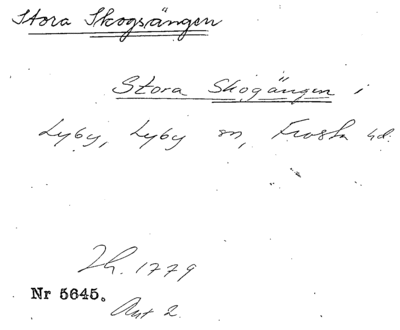 Stora Skogsängen
Stora Skogängen i
Lyby, Lyby sn, Frosta hd.
1779
Nr 5645.
Akt 2.